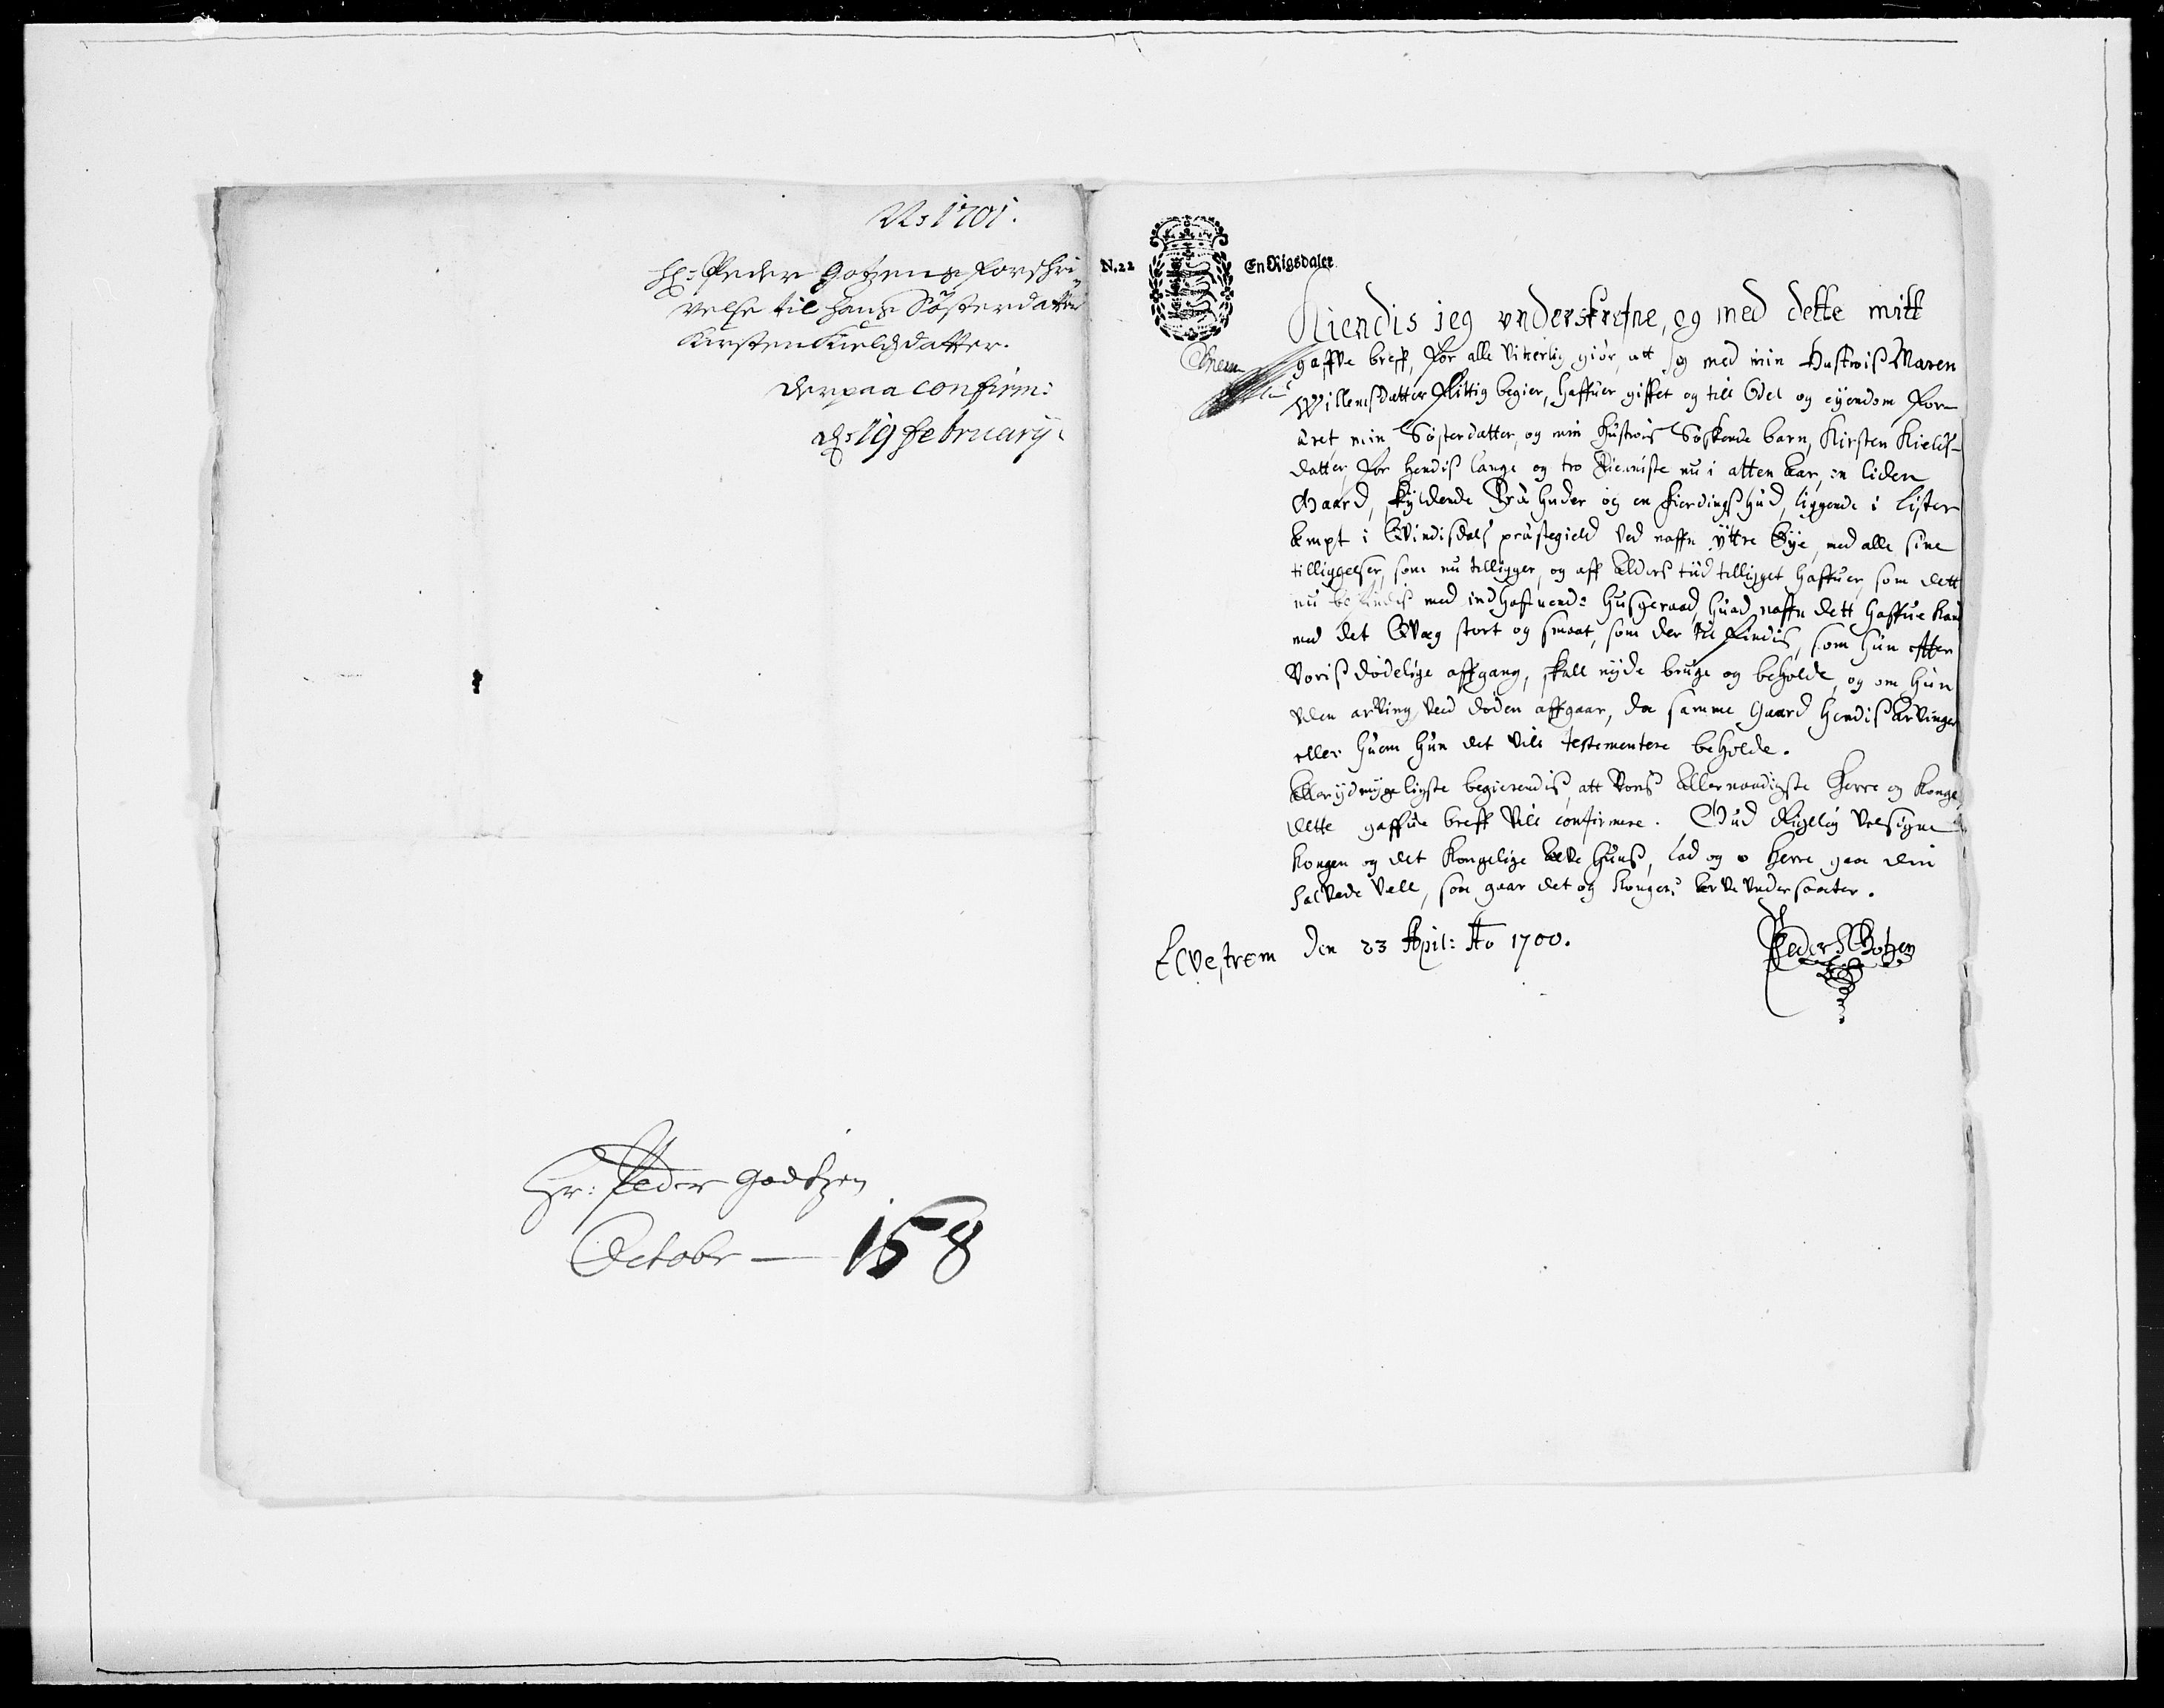 Ao 1701.
Hr: Peder Gotzens forschri-
velse til hans Søsterdatter
Kirsten Kieldsdatter.
derpaa confirm:
d: 19 february
Hr: Peder Godtzen
Octobr — 158
N. 22 En Rigsdaler
Kiendis jeg underskrefne, og med dette mitt
gaffve breff, for alle vitterlig giör, att jeg med min Hustrois Maren
Willemsdatter flittig begier, haffuer giffet og till Odel og eyendom for-
äret min Søsterdatter, og min Hustrois Søskende barn, Kirsten Kields-
datter, for hendis lange og tro tienniste nu i atten aar, en liden
Gaard, skyldende tre huder og en fierdings hud, liggende i Lister
Ampt i Qvindisdals præstegield ved naffn yttre Øye, med alle sine
tilliggelser, som nu tilligger, og aff Alders tiid tilligget haffuer, som dett
nu befindis med indhafuende husgeraad, huad naffn dett haffue kand
med det Qvæg stort og smaat, som der til findis, som hun efter
voris dødelige affgang, skall nyde bruge og beholde, og om hun
uden arving ved døden affgaar, da samme Gaard hendis Arvinger
eller huem hun det vill testementere beholde.
Allerydmygeligste begierendis, att voris Allernaadigste Herre og Konge
dette gaffue breff vill confirmere. Gud Rigelig velsigne
Kongen og det Kongelige Arve Huus, lad og o Herre gaa din
salvede vell, saa gaar det og Kongens Arve undersaatter.
Elvestrøm den 23 April: Ao 1700.
Peder Gotzen